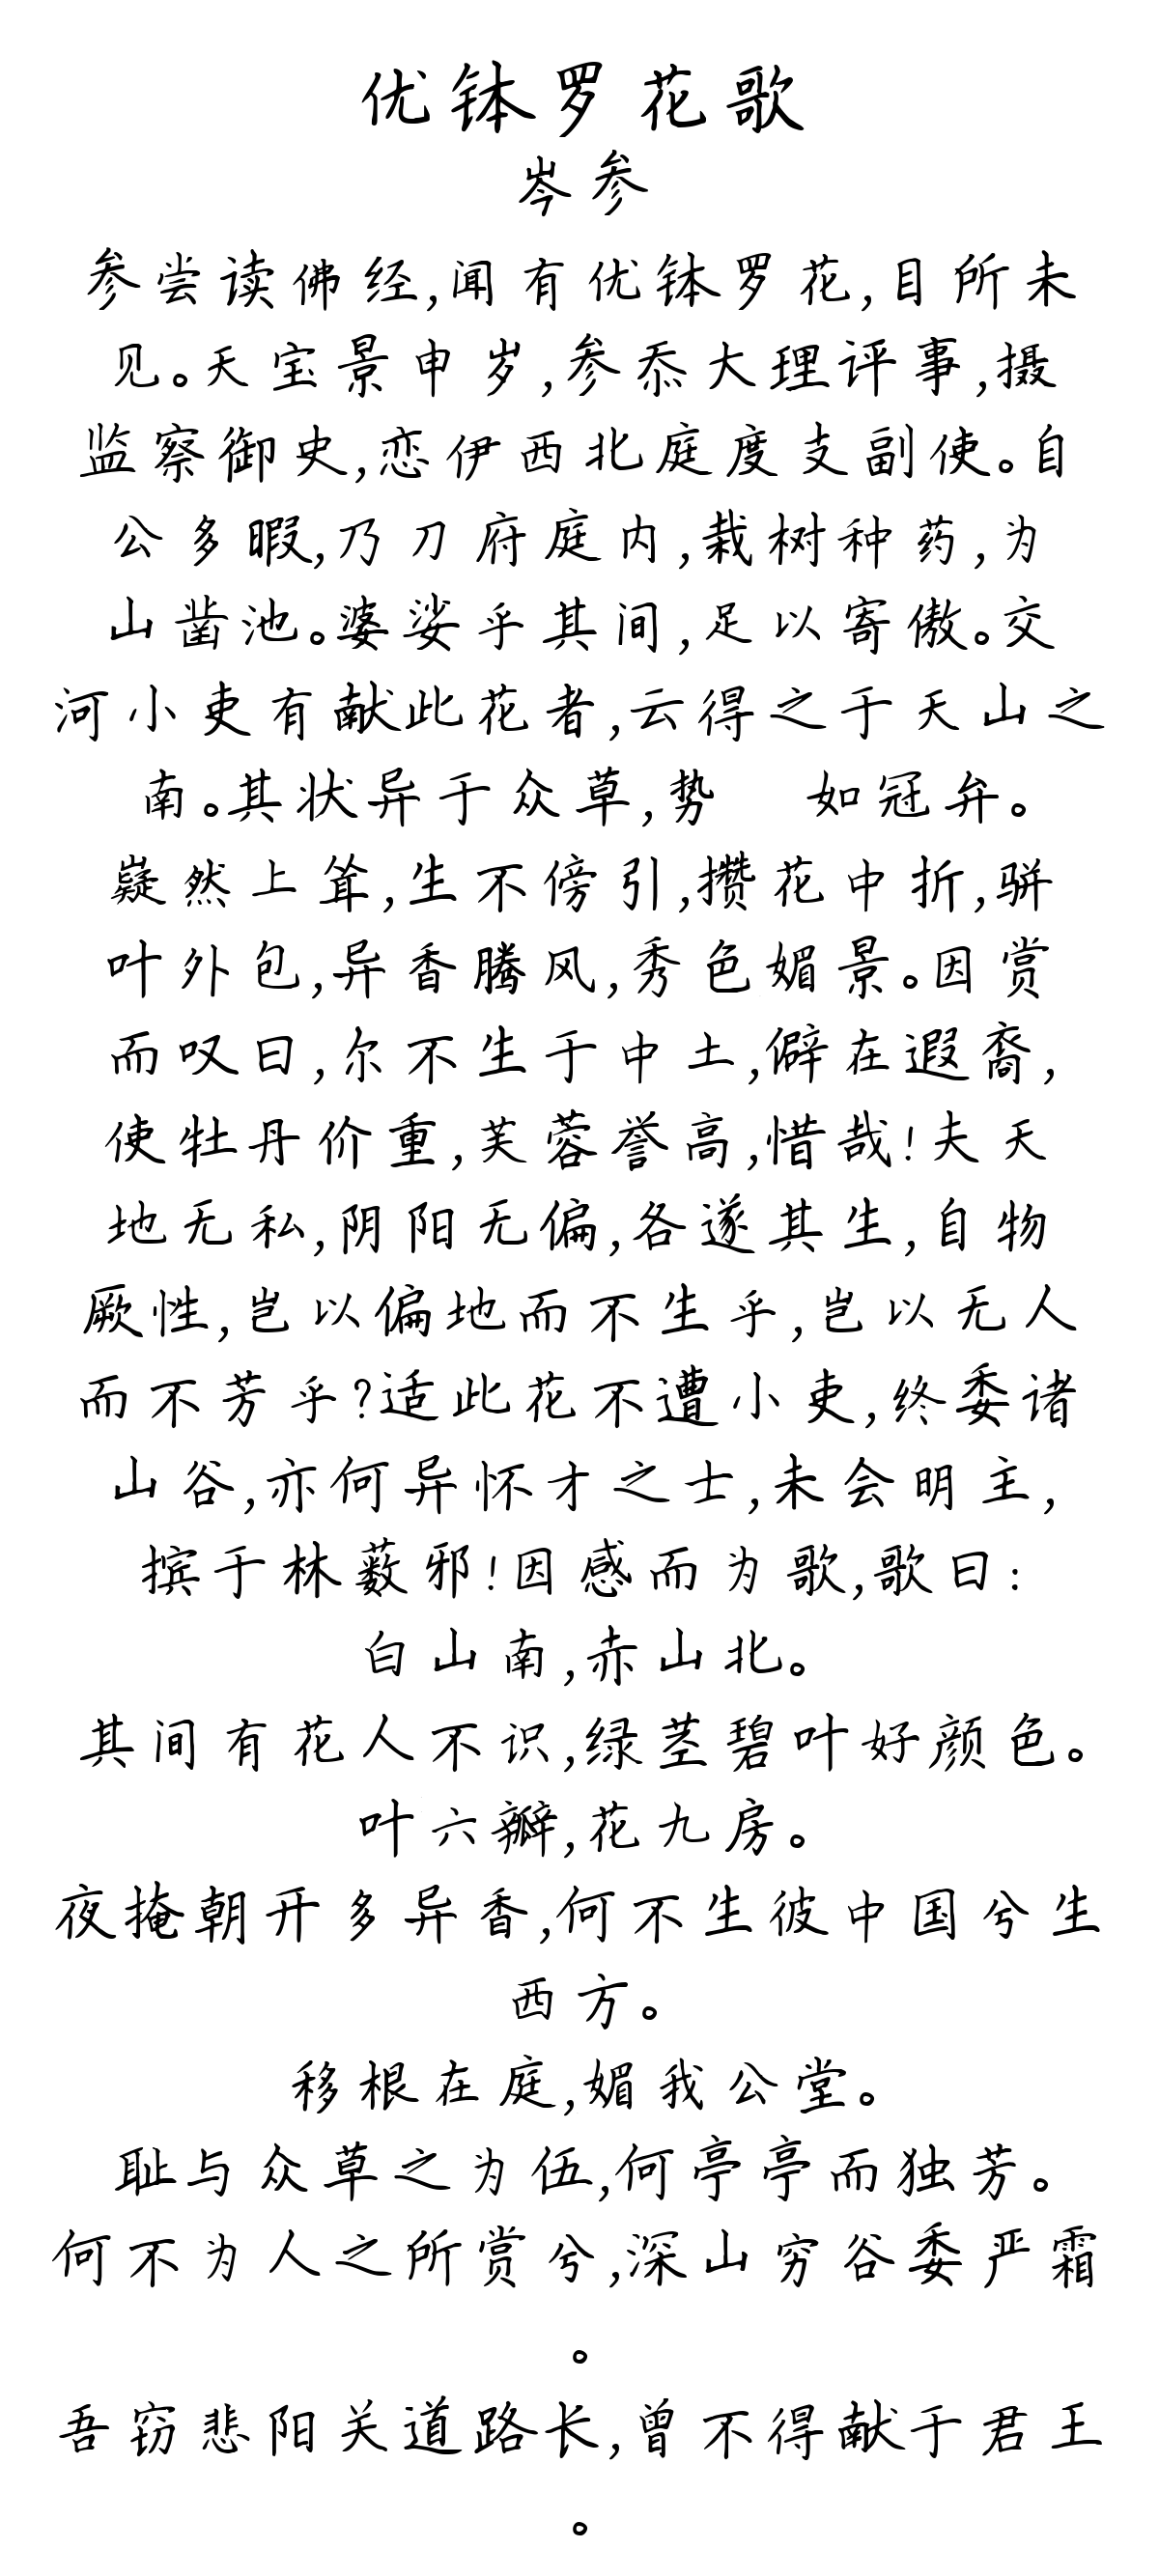 优钵罗花歌
岑参
参尝读佛经,闻有优钵罗花,目所未
见。天宝景申岁,参忝大理评事,摄
监察御史,恋伊西北庭度支副使。自
公多暇,乃刀府庭内,栽树种药,为
山凿池。婆娑乎其间,足以寄傲。交
河小吏有献此花者,云得之于天山之
南。其状异于众草,势 如冠弁。
嶷然上耸,生不傍引,攒花中折,骈
叶外包,异香腾风,秀色媚景。因赏
而叹曰,尔不生于中土,僻在遐裔,
使牡丹价重,芙蓉誉高,惜哉!夫天
地无私,阴阳无偏,各遂其生,自物
厥性,岂以偏地而不生乎,岂以无人
而不芳乎?适此花不遭小吏,终委诸
山谷,亦何异怀才之士,未会明主,
摈于林薮邪!因感而为歌,歌曰:
白山南,赤山北。
其间有花人不识,绿茎碧叶好颜色。
叶六瓣,花九房。
夜掩朝开多异香,何不生彼中国兮生
西方。
移根在庭,媚我公堂。
耻与众草之为伍,何亭亭而独芳。
何不为人之所赏兮,深山穷谷委严霜
。
吾窃悲阳关道路长,曾不得献于君王
。